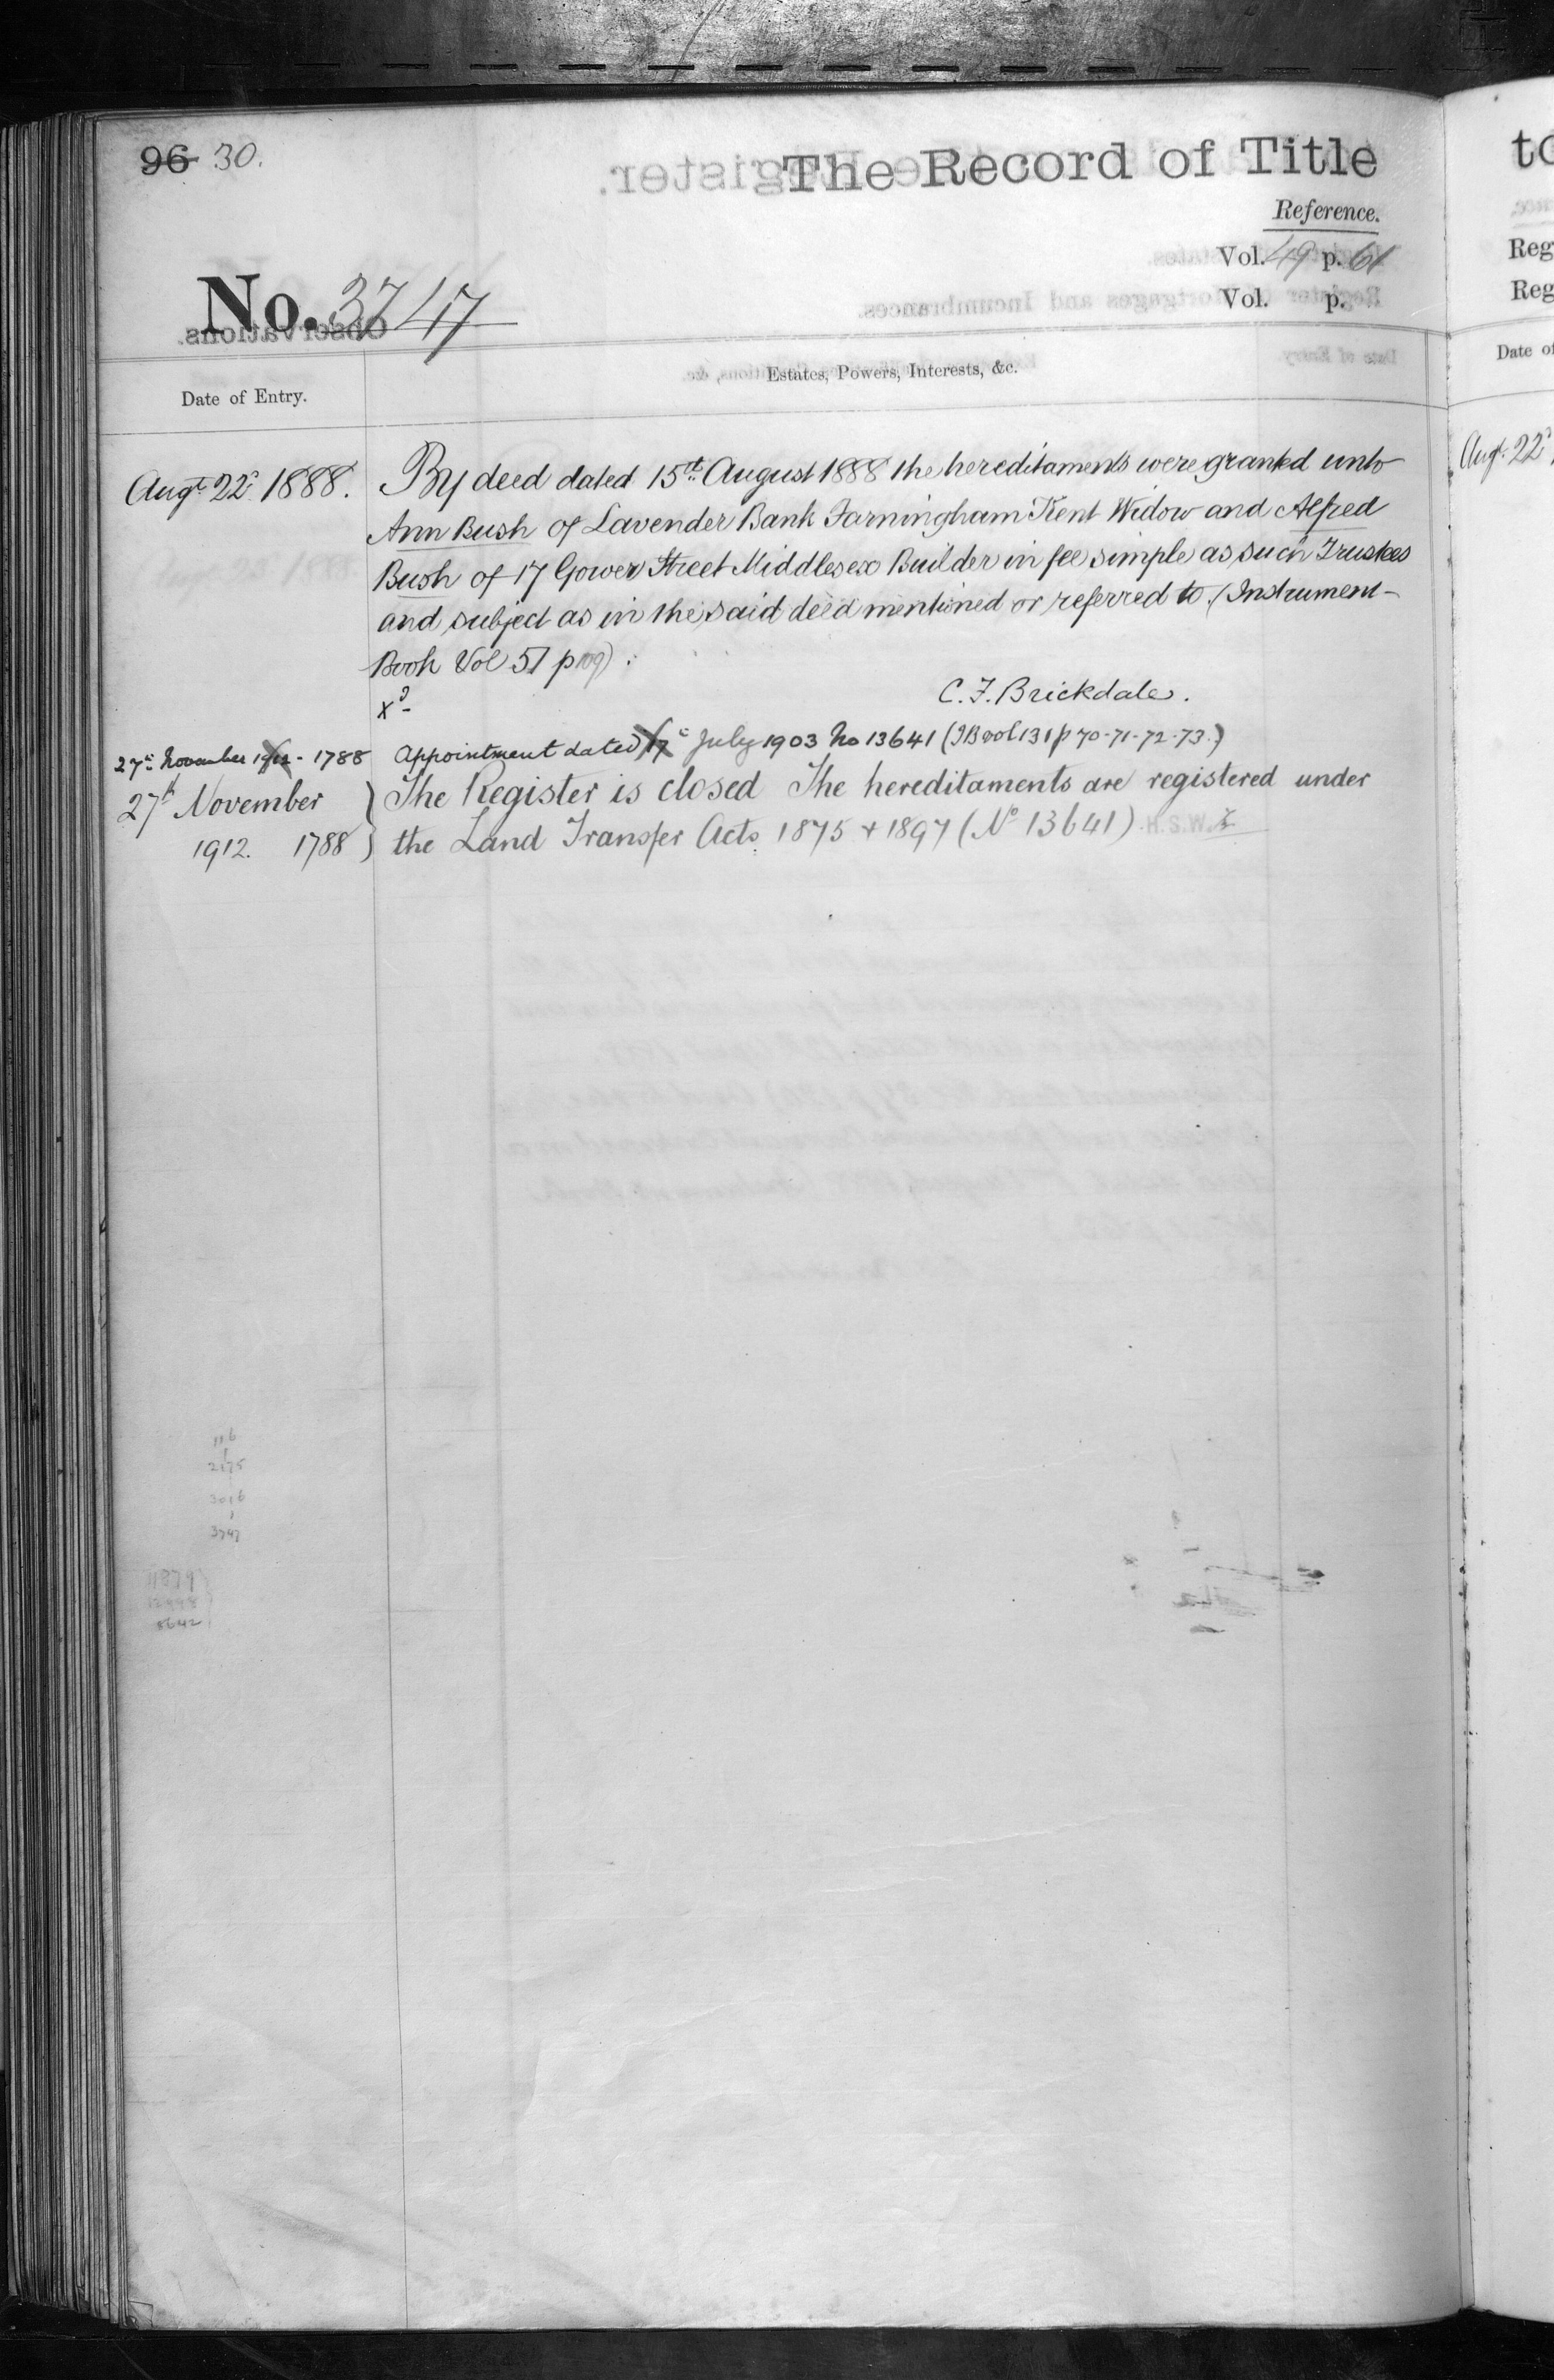 96 30.
The Record of Title
Reference.
Vol. 49 p. 61
Vol. p.
No. 3747
Date of Entry.
Estates, Powers, Interests, &c.
Augt. 22d. 1888.
By deed dated 15th. August 1888 the hereditaments were granted unto
Ann Bush of Lavender Bank Farningham Kent Widow and Alfred
Bush of 17 Gower Street Middlesex Builder in fee simple as such Trustees
and subject as in the said deed mentioned or referred to. (Instrument-
Book Vol 57 p 109) .
Xd-
C. F. Brickdale.
27th November 1912 - 1788
Appointment dated 17th July 1903 No 13641 (IB vol 131 p 70-71-72-73.)
27th November
1912. 1788
The Register is closed The hereditaments are registered under
the Land Transfer Acts 1875 & 1897 (No 13641) H.S.W.
116
2175
3016
3747
11879
to
Reg
Reg
Date of
Augt. 22d